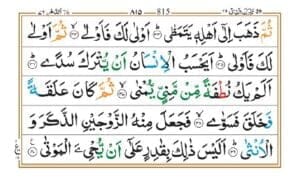 ۸۱۵ 815
ثُمَّ ذَهَبَ اِلٰٓى اَهْلِهٖ يَتَمَطّٰى ؕ اَوْلٰى لَكَ فَاَوْلٰى ۙ ثُمَّ اَوْلٰى
لَكَ فَاَوْلٰى ؕ اَيَحْسَبُ الْاِنْسَانُ اَنْ يُّتْرَكَ سُدًى ؕ
اَلَمْ يَكُ نُطْفَةً مِّنْ مَّنِىٍّ يُّمْنٰى ۙ ثُمَّ كَانَ عَلَقَةً
فَخَلَقَ فَسَوّٰى ۙ فَجَعَلَ مِنْهُ الزَّوْجَيْنِ الذَّكَرَ وَ
الْاُنْثٰى ؕ اَلَيْسَ ذٰلِكَ بِقٰدِرٍ عَلٰٓى اَنْ يُّحْیِۦَ الْمَوْتٰى